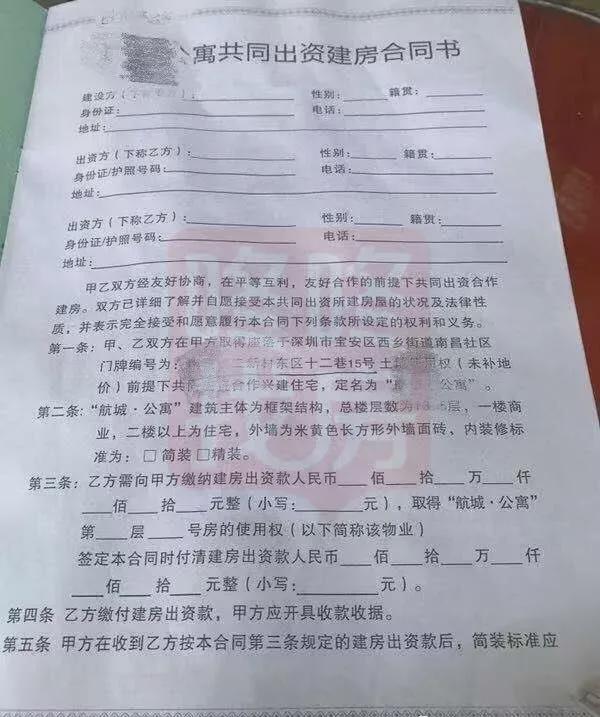 公寓共同出资建房合同书
建设方（下称甲方）：　性别：　籍贯：
身份证：　电话：
地址：
出资方（下称乙方）：　性别：　籍贯：
身份证/护照号码：　电话：
地址：
出资方（下称乙方）：　性别：　籍贯：
身份证/护照号码：　电话：
地址：
甲乙双方经友好协商，在平等互利，友好合作的前提下共同出资合作
建房。双方已详细了解并自愿接受本共同出资所建房屋的状况及法律性
质，并表示完全接受和愿意履行本合同下列条款所设定的权利和义务。
第一条：甲、乙双方在甲方取得座落于深圳市宝安区西乡街道南昌社区
门牌编号为：新村东区十二巷15号土地使用权（未补地
价）前提下共同合作兴建住宅，定名为“公寓”。
第二条：“航城·公寓”建筑主体为框架结构，总楼层数为层，一楼商
业，二楼以上为住宅，外墙为米黄色长方形外墙面砖、内装修标
准为：□简装□精装。
第三条：乙方需向甲方缴纳建房出资款人民币___佰___拾___万___仟
___佰___拾___元整（小写：________元），取得“航城·公寓”
第___层___号房的使用权（以下简称该物业）
签定本合同时付清建房出资款人民币___佰___拾___万___仟
___佰___拾___元整（小写：________元）。
第四条 乙方缴付建房出资款，甲方应开具收款收据。
第五条 甲方在收到乙方按本合同第三条规定的建房出资款后，简装标准应